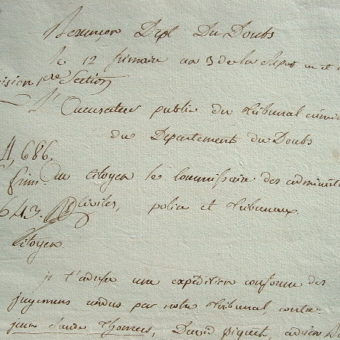 Besançon Dept Du Doubs
le 12 frimaire an 3 de la Repub
ision 1ere Section
L'accusateur public du tribunal crimi
du Departement du Doubs
4,686.
au citoyen le commissaire des administ
643 civiles, police et tribunaux.
Citoyen
je t'adresse une expédition conforme des
jugemens rendus par notre tribunal contre
jean thomas, David piquet, adrien